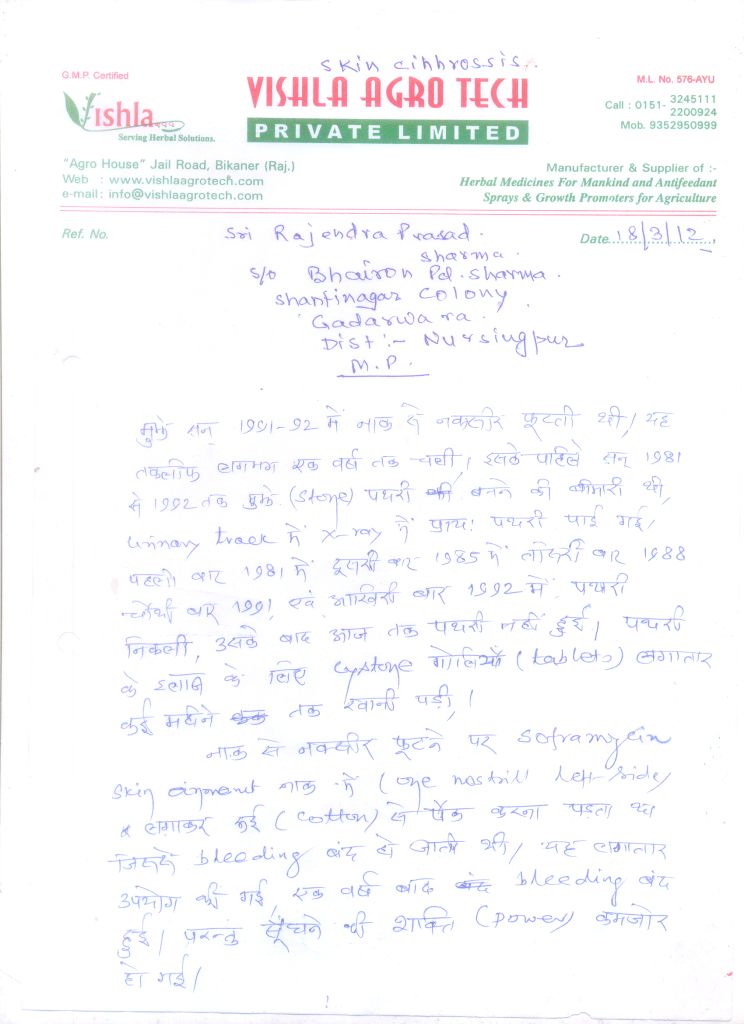 skin cihhrossis.
G.M.P. Certified
Vishla
Serving Herbal Solutions.
VISHLA AGRO TECH
PRIVATE LIMITED
M.L. No. 576-AYU
Call : 0151- 3245111
2200924
Mob. 9352950999
"Agro House" Jail Road, Bikaner (Raj.)
Web : www.vishlaagrotech.com
e-mail : info@vishlaagrotech.com
Manufacturer & Supplier of :-
Herbal Medicines For Mankind and Antifeedant
Sprays & Growth Promoters for Agriculture
Ref. No.
Date 18/3/12
Sri Rajendra Prasad
Sharma.
S/o Bhairon Pd. Sharma.
Shantinagar Colony
Gadarwara.
Dist :- Nursingpur
M.P.
मुझे सन् 1991-92 में नाक से नकसीर फूटती थी। यह
तकलीफ लगभग एक वर्ष तक चली, इसके पहिले सन् 1981
से 1992 तक मुझे (stone) पथरी की बनने की बीमारी थी,
urinary track में X-ray में प्रायः पथरी पाई गई।
पहली बार 1981 में दूसरी बार 1985 में तीसरी बार 1988
चौथी बार 1991 एवं आखिरी बार 1992 में पथरी
निकली, उसके बाद आज तक पथरी नहीं हुई। पथरी
के इलाज के लिए cystone गोलियाँ (tablets) लगातार
कई महीने तक खानी पड़ी,।
नाक से नकसीर फूटने पर soframycin
skin oinment नाक में (one nostrill left-side)
लगाकर रूई (cotton) से पैक करना पड़ता था
जिससे bleeding बंद हो जाती थी। यह लगातार
उपयोग की गई, एक वर्ष बाद bleeding बंद
हुई। परन्तु सूँघने की शक्ति (power) कमजोर
हो गई।